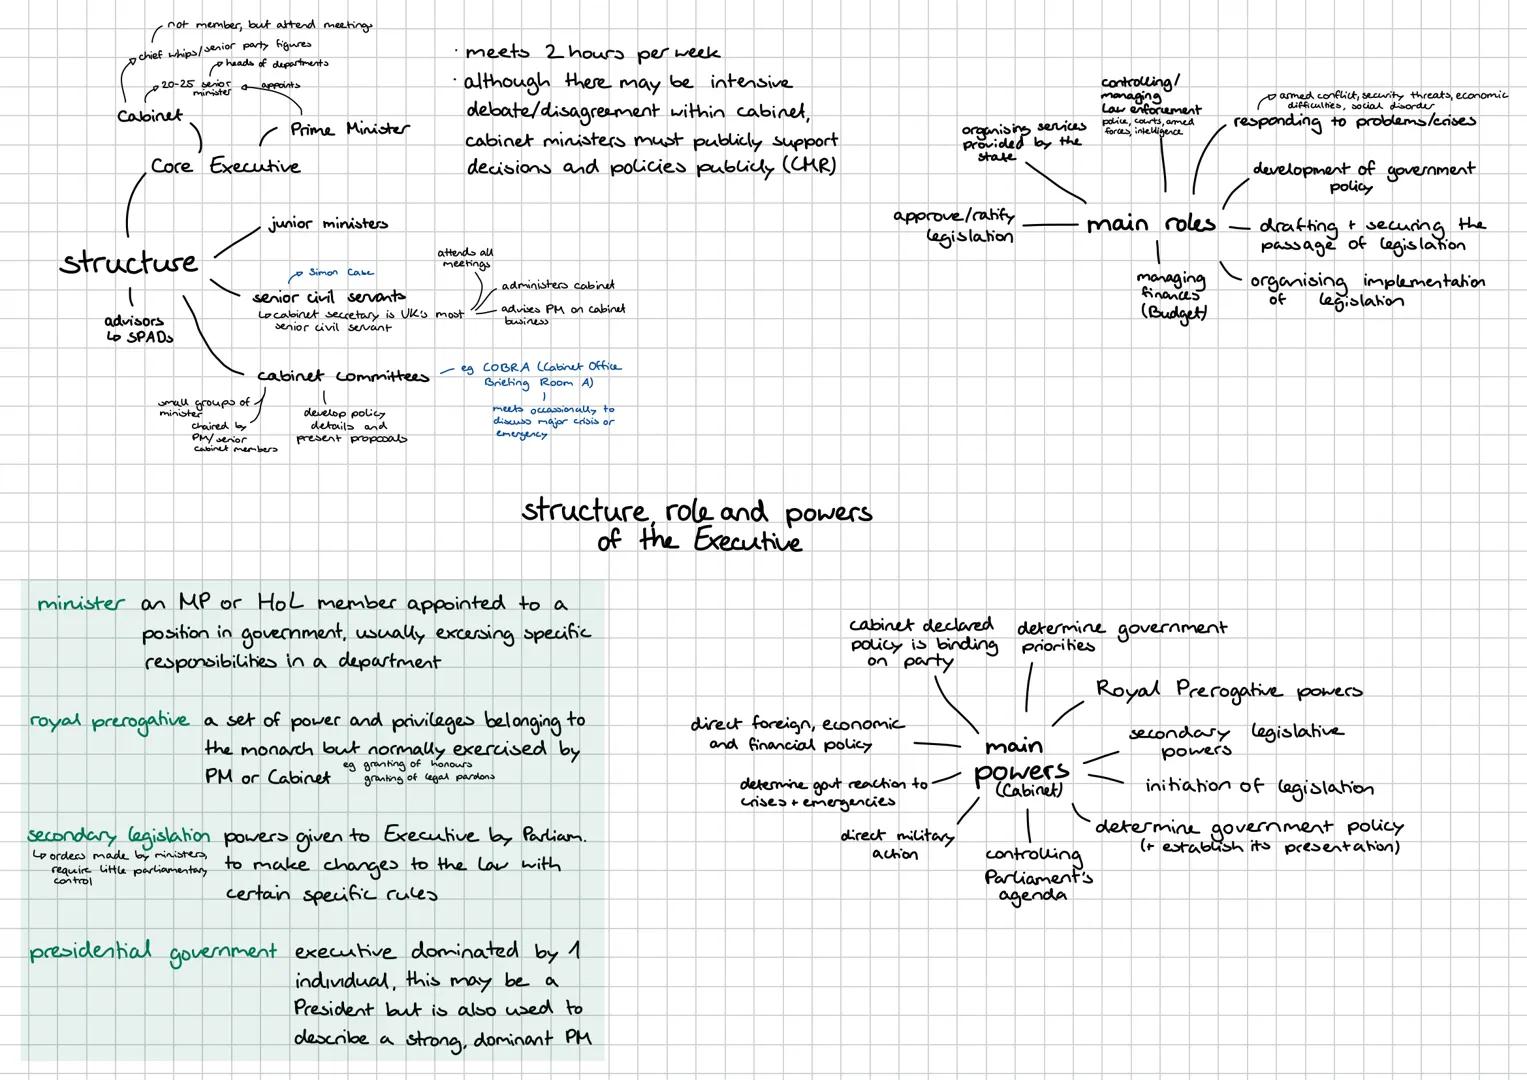 not member, but attend meetings
chief whips/senior party figures
heads of departments
20-25 senior
minister
appoints
Cabinet
Prime Minister
Core Executive
structure
junior ministers
Simon Case
senior civil servants
↳ cabinet secretary is UK's most
senior civil servant
attends all
meetings
administers cabinet
advises PM on cabinet
business
advisors
↳ SPADs
cabinet committees
small groups of
minister
chaired by
PM/senior
cabinet members
develop policy
details and
present proposals
eg COBRA (Cabinet Office
Briefing Room A)
meets occassionally to
discuss major crisis or
emergency
· meets 2 hours per week
· although there may be intensive
debate/disagreement within cabinet,
cabinet ministers must publicly support
decisions and policies publicly (CMR)
main roles
approve/ratify
legislation
organising services
provided by the
state
controlling/
managing
law enforcement
police, courts, armed
forces, intelligence
armed conflict, security threats, economic
difficulties, social disorder
responding to problems/crises
development of government
policy
drafting + securing the
passage of legislation
organising implementation
of legislation
managing
finances
(Budget)
structure, role and powers
of the Executive
minister an MP or HoL member appointed to a
position in government, usually excersing specific
responsibilities in a department
royal prerogative a set of power and privileges belonging to
the monarch but normally exercised by
PM or Cabinet
eg granting of honours
granting of legal pardons
secondary legislation powers given to Executive by Parliam.
↳ orders made by ministers,
require little parliamentary
control
to make changes to the law with
certain specific rules
presidential government executive dominated by 1
individual, this may be a
President but is also used to
describe a strong, dominant PM
main
powers
(Cabinet)
cabinet declared
policy is binding
on party
determine government
priorities
Royal Prerogative powers
secondary legislative
powers
initiation of legislation
determine government policy
(+ establish its presentation)
controlling
Parliament's
agenda
direct military
action
determine govt reaction to
crises + emergencies
direct foreign, economic
and financial policy